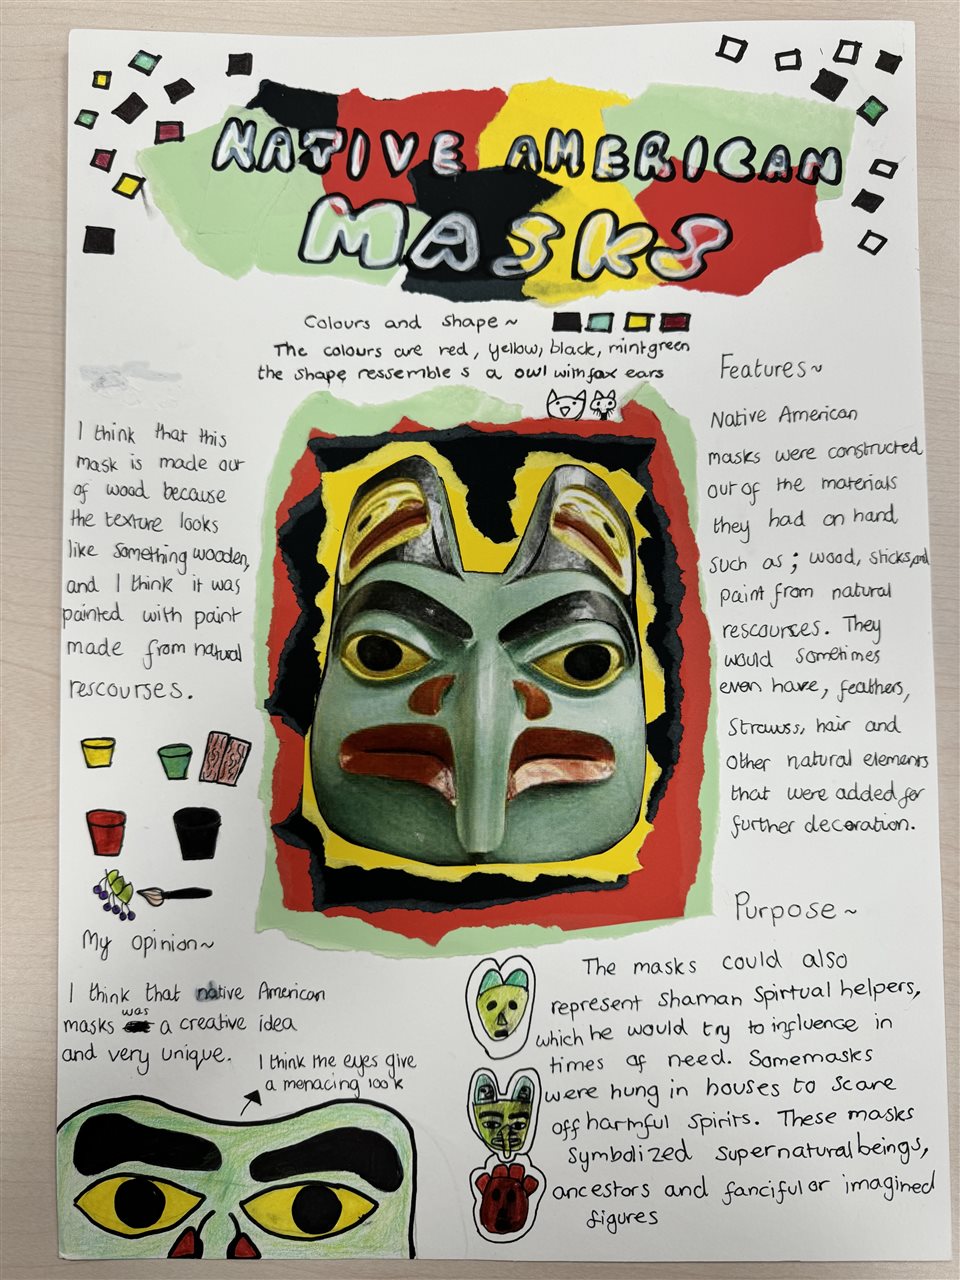 NATIVE AMERICAN
MASKS
Colours and shape ~
The colours are red, yellow, black, mintgreen
the shape ressembles a owl with fox ears
I think that this
mask is made out
of wood because
the texture looks
like something wooden,
and I think it was
painted with paint
made from natural
rescourses.
Features ~
Native American
masks were constructed
out of the materials
they had on hand
such as ; wood, sticks, and
paint from natural
rescourses. They
would sometimes
even have, feathers,
Strawss, hair and
other natural elements
that were added for
further decoration.
My opinion ~
I think that native American
masks was a creative idea
and very unique.
I think the eyes give
a menacing look
Purpose ~
The masks could also
represent shaman Spirtual helpers,
which he would try to influence in
times of need. Some masks
were hung in houses to scare
off harmful spirits. These masks
Symbolized supernatural beings,
ancestors and fanciful or imagined
figures